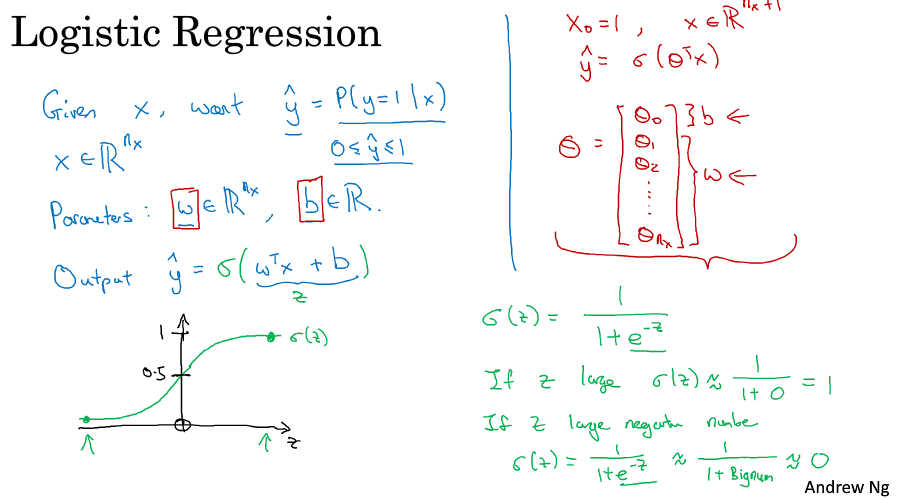 Logistic Regression
Given x, want ŷ = P(y=1|x)
0 ≤ ŷ ≤ 1
x ∈ ℝ^{n_x}
Parameters: w ∈ ℝ^{n_x}, b ∈ ℝ.
Output ŷ = σ(wᵀx + b)
z
1
0.5
σ(z)
z
x₀ = 1, x ∈ ℝ^{n_x+1}
ŷ = σ(θᵀx)
θ = [θ₀ θ₁ θ₂ ⋮ θ_{n_x}]
} b ←
} w ←
σ(z) = 1/(1+e^{-z})
If z large σ(z) ≈ 1/(1+0) = 1
If z large negative number
σ(z) = 1/(1+e^{-z}) ≈ 1/(1+Bignum) ≈ 0
Andrew Ng